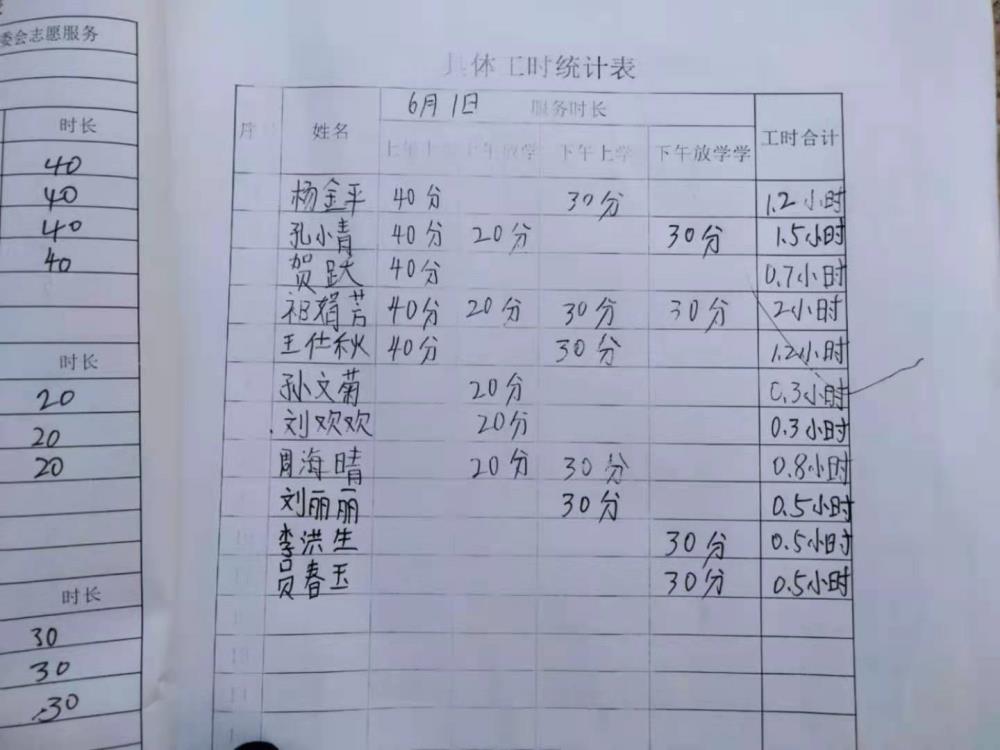 委会志愿服务
时长
40
40
40
40
时长
20
20
20
时长
30
30
30
具体工时统计表
序 姓名 6月1日 服务时长 工时合计
上午上学 上午放学 下午上学 下午放学学
杨金平 40分 30分 1.2小时
孔小青 40分 20分 30分 1.5小时
贺跃 40分 0.7小时
祖娟芳 40分 20分 30分 30分 2小时
王仕秋 40分 30分 1.2小时
孙文菊 20分 0.3小时
刘欢欢 20分 0.3小时
周海晴 20分 30分 0.8小时
刘丽丽 30分 0.5小时
李洪生 30分 0.5小时
员春玉 30分 0.5小时